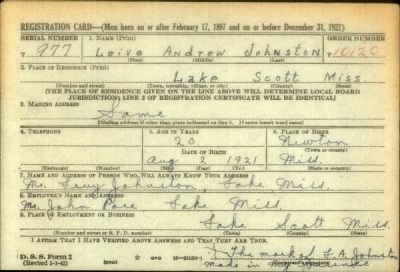 REGISTRATION CARD—(Men born on or after February 17, 1897 and on or before December 31, 1921)
SERIAL NUMBER 1. NAME (Print) ORDER NUMBER
T 977 Loive Andrew Johnston T10120
(First) (Middle) (Last)
2. PLACE OF RESIDENCE (Print)
Lake Scott Miss.
(Number and street) (Town, township, village, or city) (County) (State)
[THE PLACE OF RESIDENCE GIVEN ON THE LINE ABOVE WILL DETERMINE LOCAL BOARD
JURISDICTION; LINE 2 OF REGISTRATION CERTIFICATE WILL BE IDENTICAL]
3. MAILING ADDRESS
Same
[Mailing address if other than place indicated on line 2. If same insert word same]
4. TELEPHONE 5. AGE IN YEARS 6. PLACE OF BIRTH
20 Newton
DATE OF BIRTH (Town or county)
Aug 2 1921 Miss.
(Exchange) (Number) (Mo.) (Day) (Yr.) (State or country)
7. NAME AND ADDRESS OF PERSON WHO WILL ALWAYS KNOW YOUR ADDRESS
Mr. Levy Johnston, Lake Miss.
8. EMPLOYER'S NAME AND ADDRESS
Mr. John Pace Lake Miss.
9. PLACE OF EMPLOYMENT OR BUSINESS
Lake Scott Miss.
(Number and street or R. F. D. number) (Town) (County) (State)
I AFFIRM THAT I HAVE VERIFIED ABOVE ANSWERS AND THAT THEY ARE TRUE.
D. S. S. Form 1
the mark of L A Johnston
made in